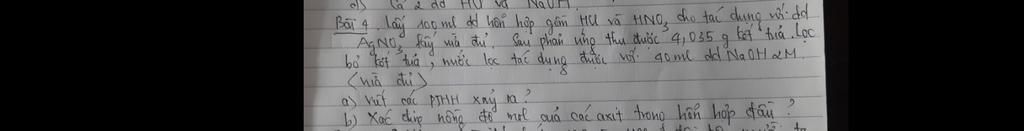 Cả 2 dd HCl và NaOH.
Bài 4. Lấy 100ml dd hỗn hợp gồm HCl và HNO3 cho tác dụng với dd
AgNO3 lấy vừa đủ. Sau phản ứng thu được 4,035 g kết tủa. Lọc
bỏ kết tủa, nước lọc tác dụng được với 40ml dd NaOH 2M.
(vừa đủ)
a) Viết các PTHH xảy ra?
b) Xác định nồng độ mol của các axit trong hỗn hợp đầu?